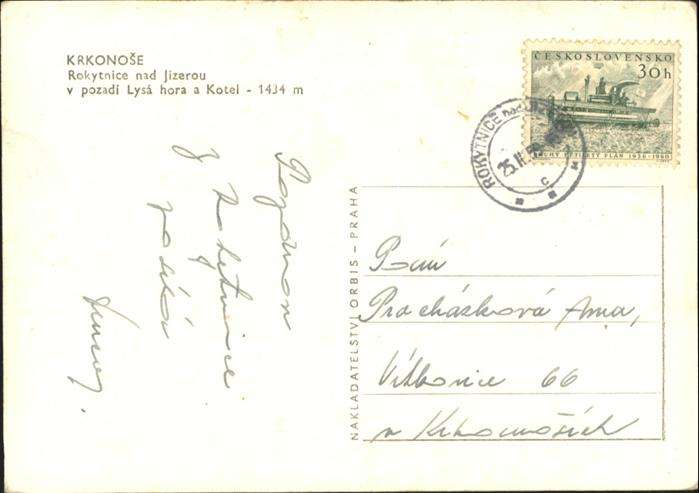 KRKONOŠE
Rokytnice nad Jizerou
v pozadí Lysá hora a Kotel - 1434 m
ČESKOSLOVENSKO
30h
DRUHÝ PĚTILETÝ PLÁN 1956-1960
ROKYTNICE nad
C
Pozdrav
z Rokytnice
posílá
NAKLADATELSTVÍ ORBIS - PRAHA
Paní
Procházková Anna,
Vítkovice 66
v Krkonoších